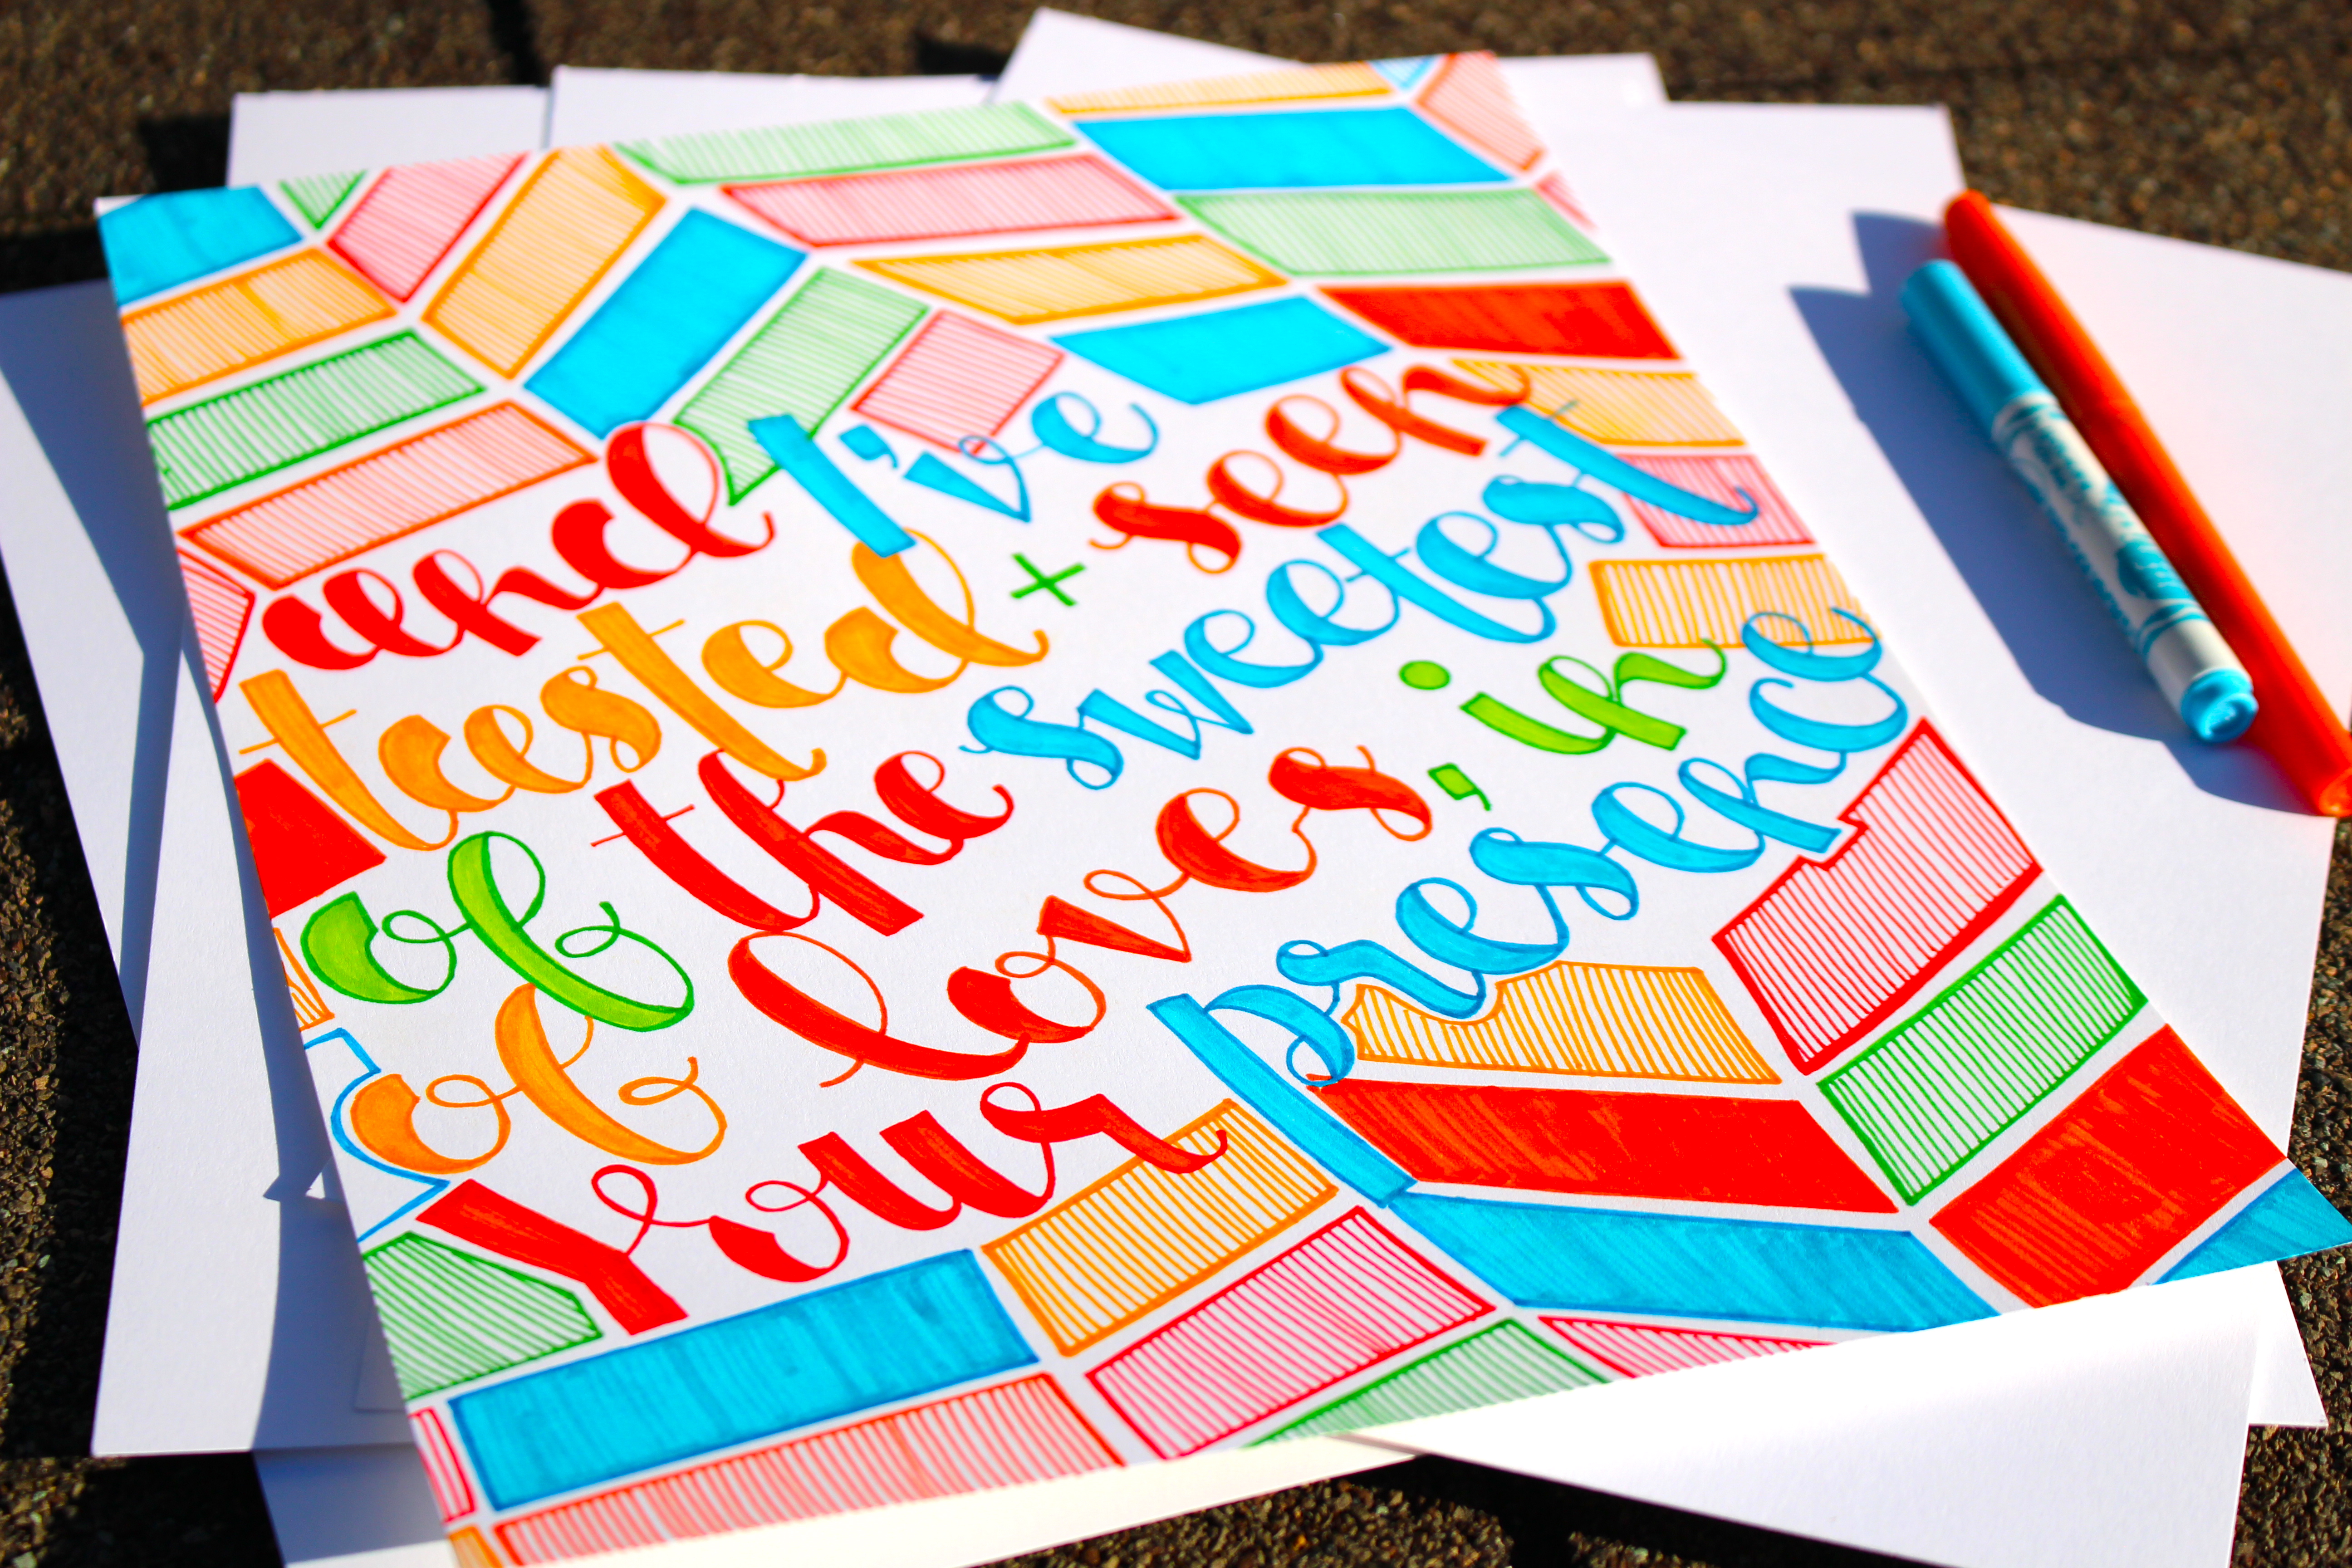 and I've
tasted + seen
of the sweetest
of loves, in
Your presence